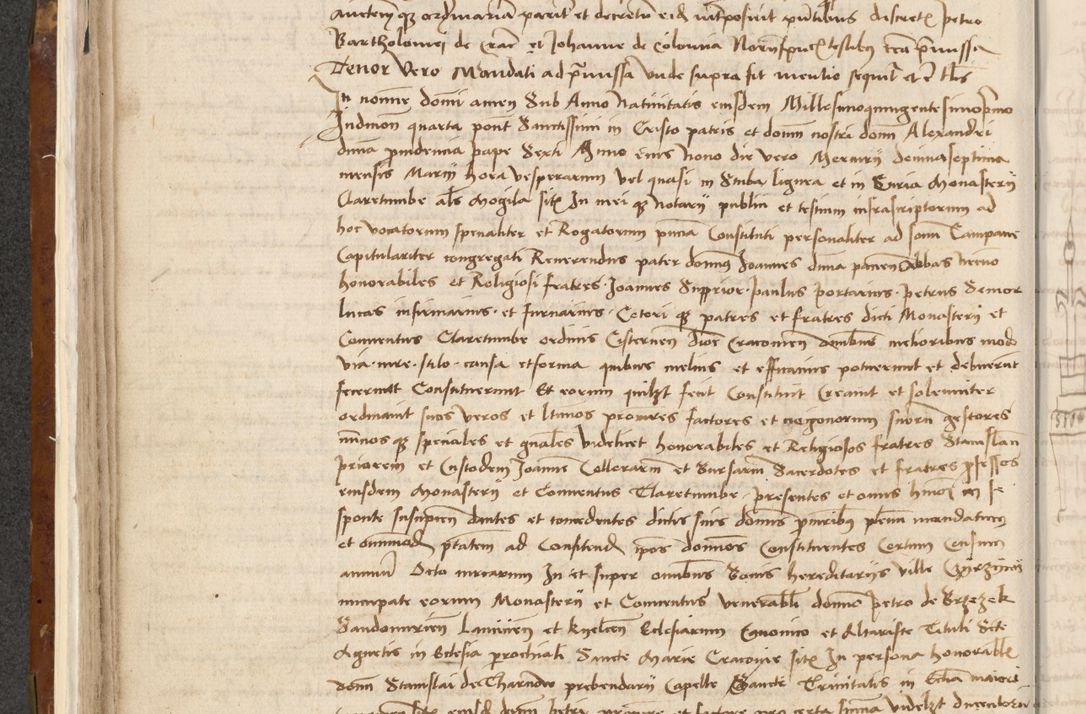 auctem q̃ ordinariam parit̃ et decretũ eid̃ int̃posuit pñtibus discret̃ petro
Bartholomei de Crac̃ et Johanne de Colonia Notariis testibus circa p̃missa
Tenor vero Mandati ad p̃missa unde supra fit mentio sequit̃ et ẽ tl̃is
In noĩe domĩ amen Sub Anno Nativitatis eiusdem Millesimoquingentesimoprimo
Indictioñ quarta pont̃ Sanctissimi in Cristo patris et domĩ nostri domĩ Alexandri
divina providencia pape Sexti Anno eius Nono die vero Mercurij decimaseptima
mensis Marcij hora vesperarum vel quasi in Stuba lignea et in Curia Monasterij
Claretumbe al̃s Mogila sit̃ In mei q̃ notarij publici et testium infrascriptorum ad
hoc vocatorum specialiter et Rogatorum pñcia Constituti personaliter ad sonũ Campane
Capitulariter congregati Reverendus pater domñs Joannes divina pacien̄ Abbas necno
honorabiles et Religiosi fratres Joannes Supprior paulus portarius petrus Senior
lucas infirmarius et furnarius Ceteri q̃ patres et fratres dicti Monasterij et
Conventus Claretumbe ordinis Cistercieñ Dioc̃ Cracovieñ omnibus melioribus mod̃
via iure stilo causa et forma quibus melius et efficacius potuerunt et debuerunt
fecerunt Constituerunt Et eorum quilz̃t fecit Constituit Creavit et solenniter
ordinavit suos veros et ltimos procures̃ factores et negociorum suorũ gestores
nuncios q̃ speciales et gñales videlicet honorabiles et Religiosos fratres Stanislaũ
priorem et Custodem Joannẽ Cellerariũ et Bursariũ Sacerdotes et fratres p̃fessos
eiusdem Monasterij et Conventus Claretumbe presentes et onus hmoĩ in se
sponte suscipieñ dantes et concedentes dictis suis domĩs p̃ncibus plenũ mandatum
et omnimod̃ p̃tatem ad Constituend̃ ip̃os domños Constituentes Certum Censum
annuũ Octo marcarum In et super omnibus Bonis hereditarijs ville
nuncupate eorum Monasterij et Conventus venerabl̃i domĩo petro de Brzezek
Sandomirieñ Lancicieñ et kyelceñ Ecclesiarum Canonico et Altariste Tituli Scte
Agnetis in Ecl̃esia parochiali Sancte Marie Cracovie sit̃ In persona honorabl̃e
domĩ Stanislai de Charnow prebendarij Capelle Sancte Trinitatis in Ecl̃ia maiori